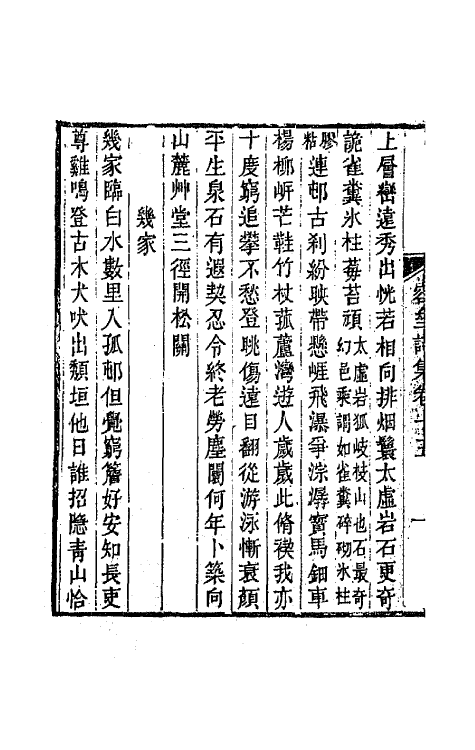 上層巒遠秀出恍若相向排烟鬟太虛岩石更奇
詭雀糞氷柱莓苔頑太虛岩狐岐枝山也石最奇
幻邑乘謂如雀糞碎砌氷柱
膠粘連邨古刹紛映帶懸崕飛瀑爭淙潺寳馬鈿車
楊柳岍芒鞋竹杖菰蘆灣遊人歲歲此脩禊我亦
十度窮追攀不愁登眺傷遠目翻從游泳慚衰顏
平生泉石有遐契忍令終老勞塵闤何年卜築向
山麓艸堂三徑開松關
幾家
幾家臨白水數里入孤邨但覺窮簷好安知長吏
尊雞鳴登古木犬吠出頹垣他日誰招隱青山恰
詩集卷十五
一